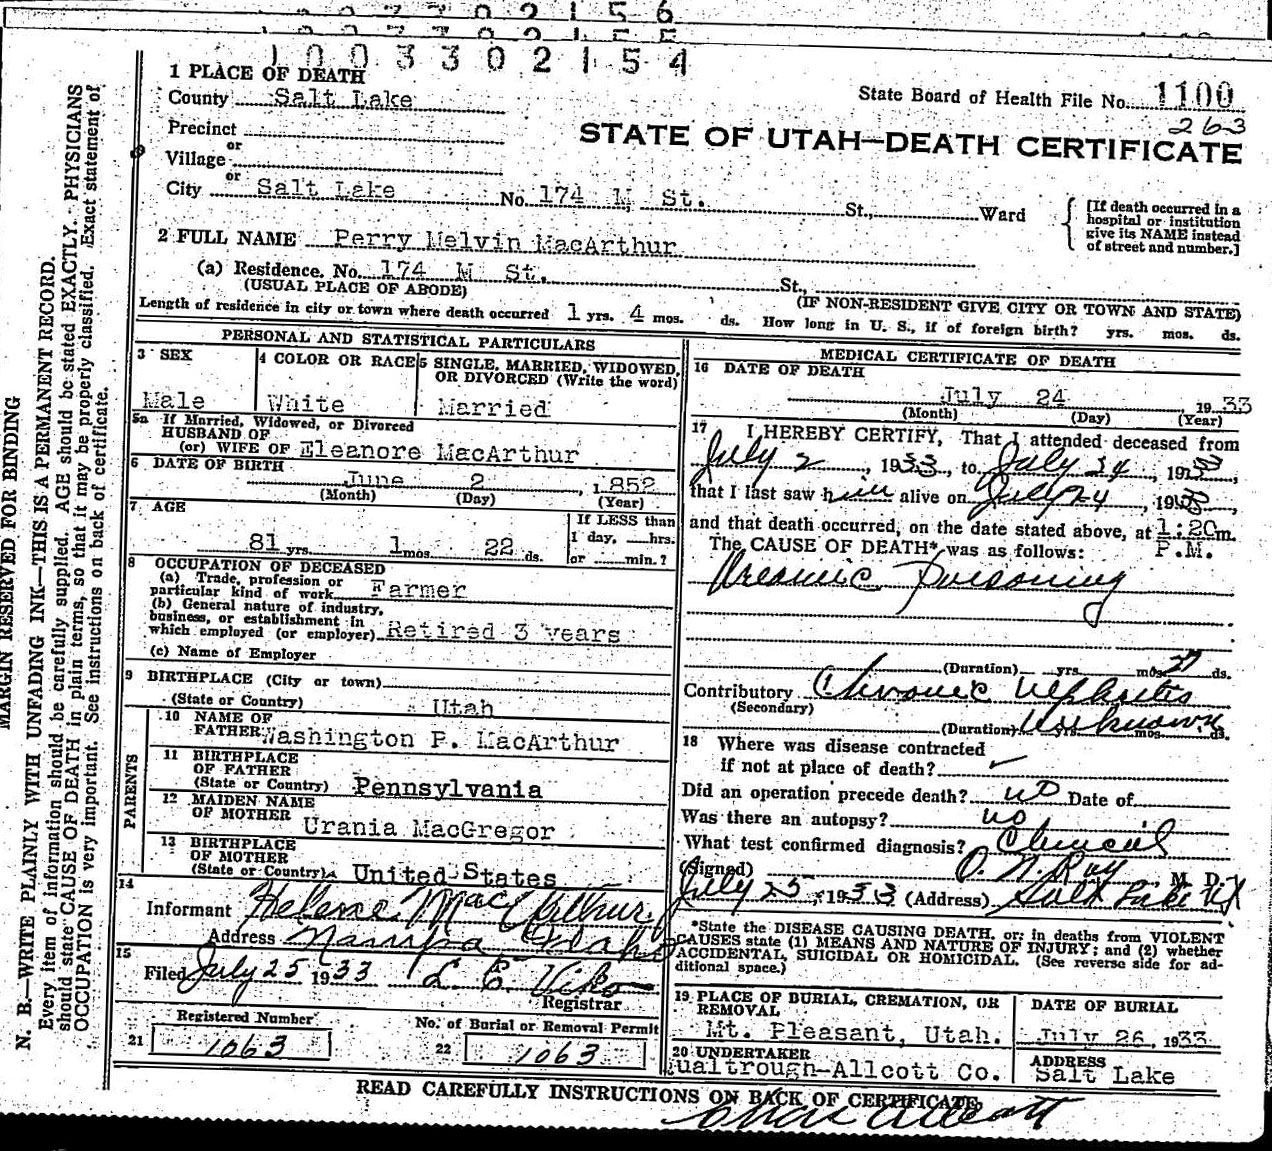 1003302154
1 PLACE OF DEATH
County Salt Lake
State Board of Health File No. 1100
263
Precinct
or
Village
or
City Salt Lake No. 174 M St. St., Ward
STATE OF UTAH—DEATH CERTIFICATE
[If death occurred in a
hospital or institution
give its NAME instead
of street and number.]
2 FULL NAME Perry Melvin MacArthur
(a) Residence. No. 174 M St. St.,
(USUAL PLACE OF ABODE)
(IF NON-RESIDENT GIVE CITY OR TOWN AND STATE)
Length of residence in city or town where death occurred 1 yrs. 4 mos. ds. How long in U. S., if of foreign birth? yrs. mos. ds.
PERSONAL AND STATISTICAL PARTICULARS
3 SEX
Male
4 COLOR OR RACE
White
5 SINGLE, MARRIED, WIDOWED,
OR DIVORCED (Write the word)
Married
5a If Married, Widowed, or Divorced
HUSBAND OF
(or) WIFE OF Eleanore MacArthur
6 DATE OF BIRTH
June 2, 1852
(Month) (Day) (Year)
7 AGE
81 yrs. 1 mos. 22 ds.
If LESS than
1 day, hrs.
or min.?
8 OCCUPATION OF DECEASED
(a) Trade, profession or
particular kind of work Farmer
(b) General nature of industry,
business, or establishment in
which employed (or employer) Retired 3 years
(c) Name of Employer
9 BIRTHPLACE (City or town)
(State or Country) Utah
PARENTS
10 NAME OF
FATHER Washington P. MacArthur
11 BIRTHPLACE
OF FATHER
(State or Country) Pennsylvania
12 MAIDEN NAME
OF MOTHER Urania MacGregor
13 BIRTHPLACE
OF MOTHER
(State or Country) United States
14
Informant Helene MacArthur
Address Nampa Idaho
15
Filed July 25 1933 L. E. Viko
Registrar
Registered Number
21 1063
No. of Burial or Removal Permit
22 1063
MEDICAL CERTIFICATE OF DEATH
16 DATE OF DEATH
July 24 1933
(Month) (Day) (Year)
17 I HEREBY CERTIFY, That I attended deceased from
July 2, 1933, to July 24, 1933,
that I last saw him alive on July 24, 1933,
and that death occurred, on the date stated above, at 1:20 m.
P.M.
The CAUSE OF DEATH* was as follows:
Uremic Poisoning
(Duration) yrs. mos. 27 ds.
Contributory Chronic Nephritis
(Secondary)
(Duration) Unknown yrs. mos. ds.
18 Where was disease contracted
if not at place of death?
Did an operation precede death? no Date of
Was there an autopsy? no
What test confirmed diagnosis? Clinical
(Signed) O. N. Ray M. D.
July 25, 1933 (Address) Salt Lake Ut
*State the DISEASE CAUSING DEATH, or; in deaths from VIOLENT
CAUSES state (1) MEANS AND NATURE OF INJURY; and (2) whether
ACCIDENTAL, SUICIDAL OR HOMICIDAL. (See reverse side for ad-
ditional space.)
19 PLACE OF BURIAL, CREMATION, OR
REMOVAL
Mt. Pleasant, Utah.
DATE OF BURIAL
July 26, 1933
20 UNDERTAKER
Qualtrough-Allcott Co.
ADDRESS
Salt Lake
READ CAREFULLY INSTRUCTIONS ON BACK OF CERTIFICATE.
MARGIN RESERVED FOR BINDING
N. B.—WRITE PLAINLY WITH UNFADING INK—THIS IS A PERMANENT RECORD.
Every item of information should be carefully supplied. AGE should be stated EXACTLY. PHYSICIANS
should state CAUSE OF DEATH in plain terms, so that it may be properly classified. Exact statement of
OCCUPATION is very important. See instructions on back of certificate.